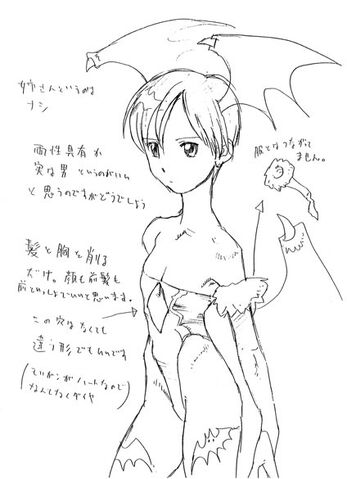 姉さんというのは
ナシ
両性具有か
穴な男 というのがいい
と思うのですがどうでしょう
服とはつながって
ません。
髪と胸を削る
だけ。顔も前髪も
前といっしょでいいと思います。
この穴はなくても
違う形でもいいです
がハートなので
なんとなくダイヤ